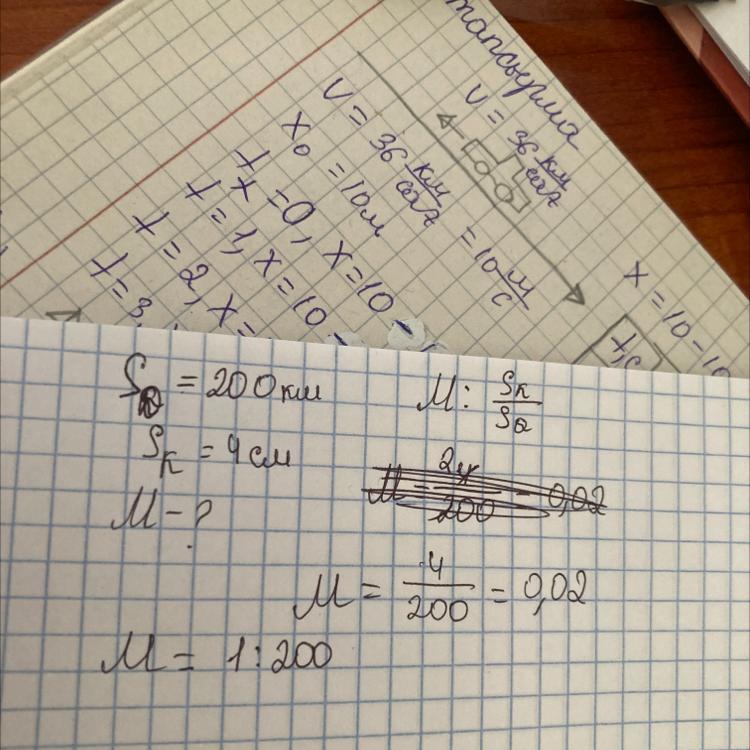 тапсырма
V = 36 км/саг
V = 36 км/саг = 10 м/с
x₀ = 10 м
t x = 0, x = 10 -
t = 1, x = 10 -
t = 2, x =
t = 3,
x = 10 - 10
t, c
S = 200 км
Sк = 4 см
M - ?
M: Sк/S
M = 4/200 = 0,02
M = 1:200